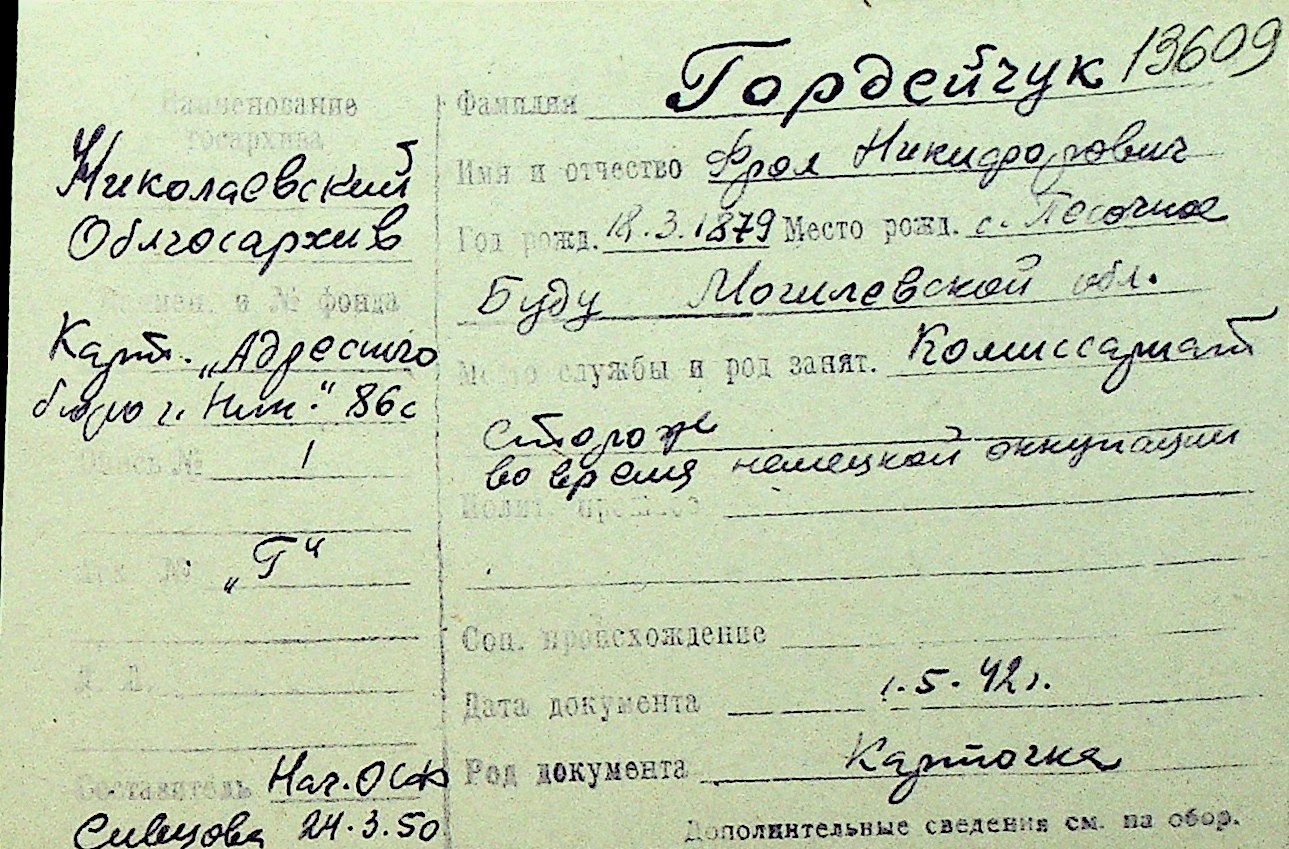 Гордейчук 13609
Наименование
госархива
Николаевский
Облгосархив
Наимен. и № фонда
Карт. „Адресного
бюро г. Ник." 86с
Опись № 1
Арх. № „Г"
Л. Л.
Составитель Нач. ОСФ
Сивцова 24.3.50
Фамилия
Имя и отчество Фрол Никифорович
Год рожд. 18.3.1879 Место рожд. с. Песочное
Буду Могилевской обл.
Место службы и род занят. Комиссариат
сторож
во время немецкой оккупации
Полит. прошлое
Соц. происхождение
Дата документа 1.5.42 г.
Род документа Карточка
Дополнительные сведения см. на обор.